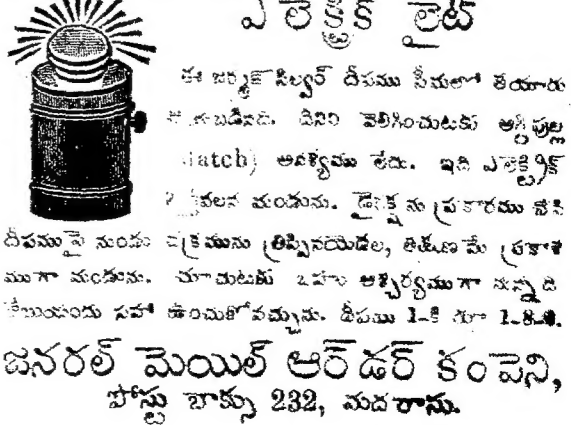 ఎ లె క్ట్రి క్ లైట్
ఈ జర్మన్ సిల్వర్ దీపము సీమలో తయారు
బడినది. దీని వెలిగించుటకు అగ్గిపుల్ల
atch) అవశ్యము లేదు. ఇది ఎలెక్ట్రిక్
వలన మండును. డైరెక్ష ను ప్రకారము
దీపము పై నుండు చక్రమును త్రిప్పినయెడల, తత్‌క్షణ మే ప్రకాశ
ము గా మండును. చూచుటకు బహు ఆశ్చర్యము గా నున్న ది
జేబుయందు సహా ఉంచుకోవచ్చును. దీపము 1-కి రూ 1-8-0.
జనరల్ మెయిల్ ఆర్‌డర్ కంపెని,
పోస్టు బాక్సు 232, మదరాసు.